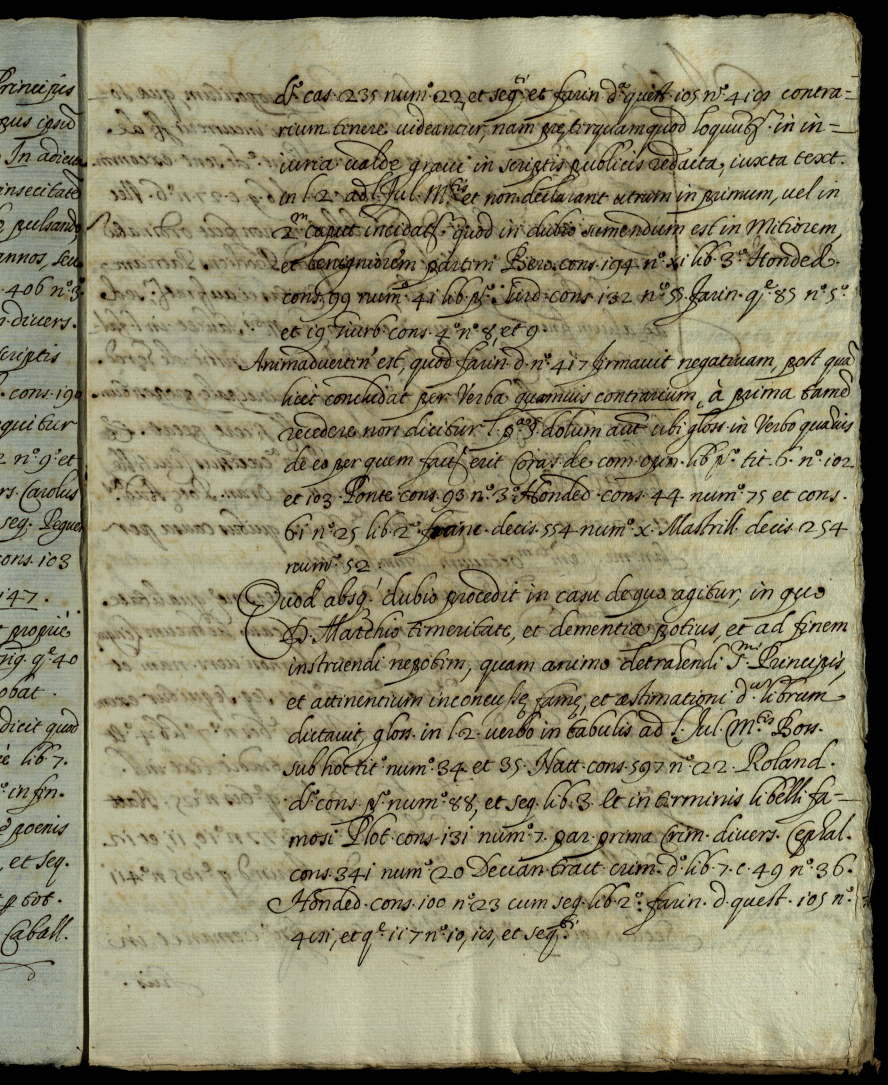 Principis
pus ipsũ
In adicta
insecitatẽ
pulsando
annos, seu
406 n.º 3
divers.
scriptis
cons. 190
equitur
n.º 9 et
rs. Carolus
seq. Peguer
cons. 103
147.
propriè
q.e 40
obat.
dicit quod
lib. 7.
in fin.
poenis
, et seq.
tot.
Caball.
d.º cas. 235 num.º 22, et seq.ti et Farin. d.a quest. 105 n.º 419 contra=
rium tenere uideantur, nam preterquamquod loquūtr. in in=
iuria ualde graui in scriptis publicis redacta, iuxta text.
in l. 2. ad l. Jul. M.tis et non declarant utrum in primum, uel in
2.m caput incidat, quod in dubio sumendum est in Mitiorem,
et benigniorem partem Bero. cons. 194 n.º xi lib. 3.º Honded.
cons. 99 num.º 41 lib. p.º Surd. cons. 132 n.º 55. Farin. q.e 85 n.º 5.º
et 19 Turb. cons. 4.º n.º 8, et 9.
Animadvertēn. est, quod Farin. d. n.º 417 firmauit negatiuam, post quã
licet concludat per Verba quamuis contrarium, à prima tamẽ
recedere non dicitur l. 3.º § dolum aut. ubi glos. in Verbo quamuis
de eo per quem fact. erit Coras. de com. opin. lib. p.º tit. 6.º n.º 102
et 103 Ponte cons. 93 n.º 3.º Honded. cons. 44 num.º 75 et cons.
61 n.º 25 lib. 2.º Franc. decis. 554 num.º x. Mastrill. decis. 254
num.º 52
Quod absq. dubio procedit in casu de quo agitur, in quo
D. Marchio temeritate, et dementia potius, et ad finem
instruendi nepotem, quam animo detrahendi S.mi Principis,
et attinentium inconcussę famę, et æstimationi d.um librum
dictauit, glos. in l. 2. uerbo in tabulis ad l. Jul. M.tis Boss.
sub hoc tit.º num.º 34 et 35. Natt. cons. 597 n.º 22. Roland.
d.º cons. p.º num.º 88, et seq. lib. 3. Et in terminis libelli fa=
mosi Plot. cons. 131 num.º 7. par. prima Crim. divers. Cephal.
cons. 341 num.º 20 Decian. tract. crim. d.º lib. 7. c. 49 n.º 36.
Honded. cons. 100 n.º 23 cum seq. lib. 2.º Farin. d. quest. 105 n.º
411, et q.e 117 n.º 10, 105, et seq.ti